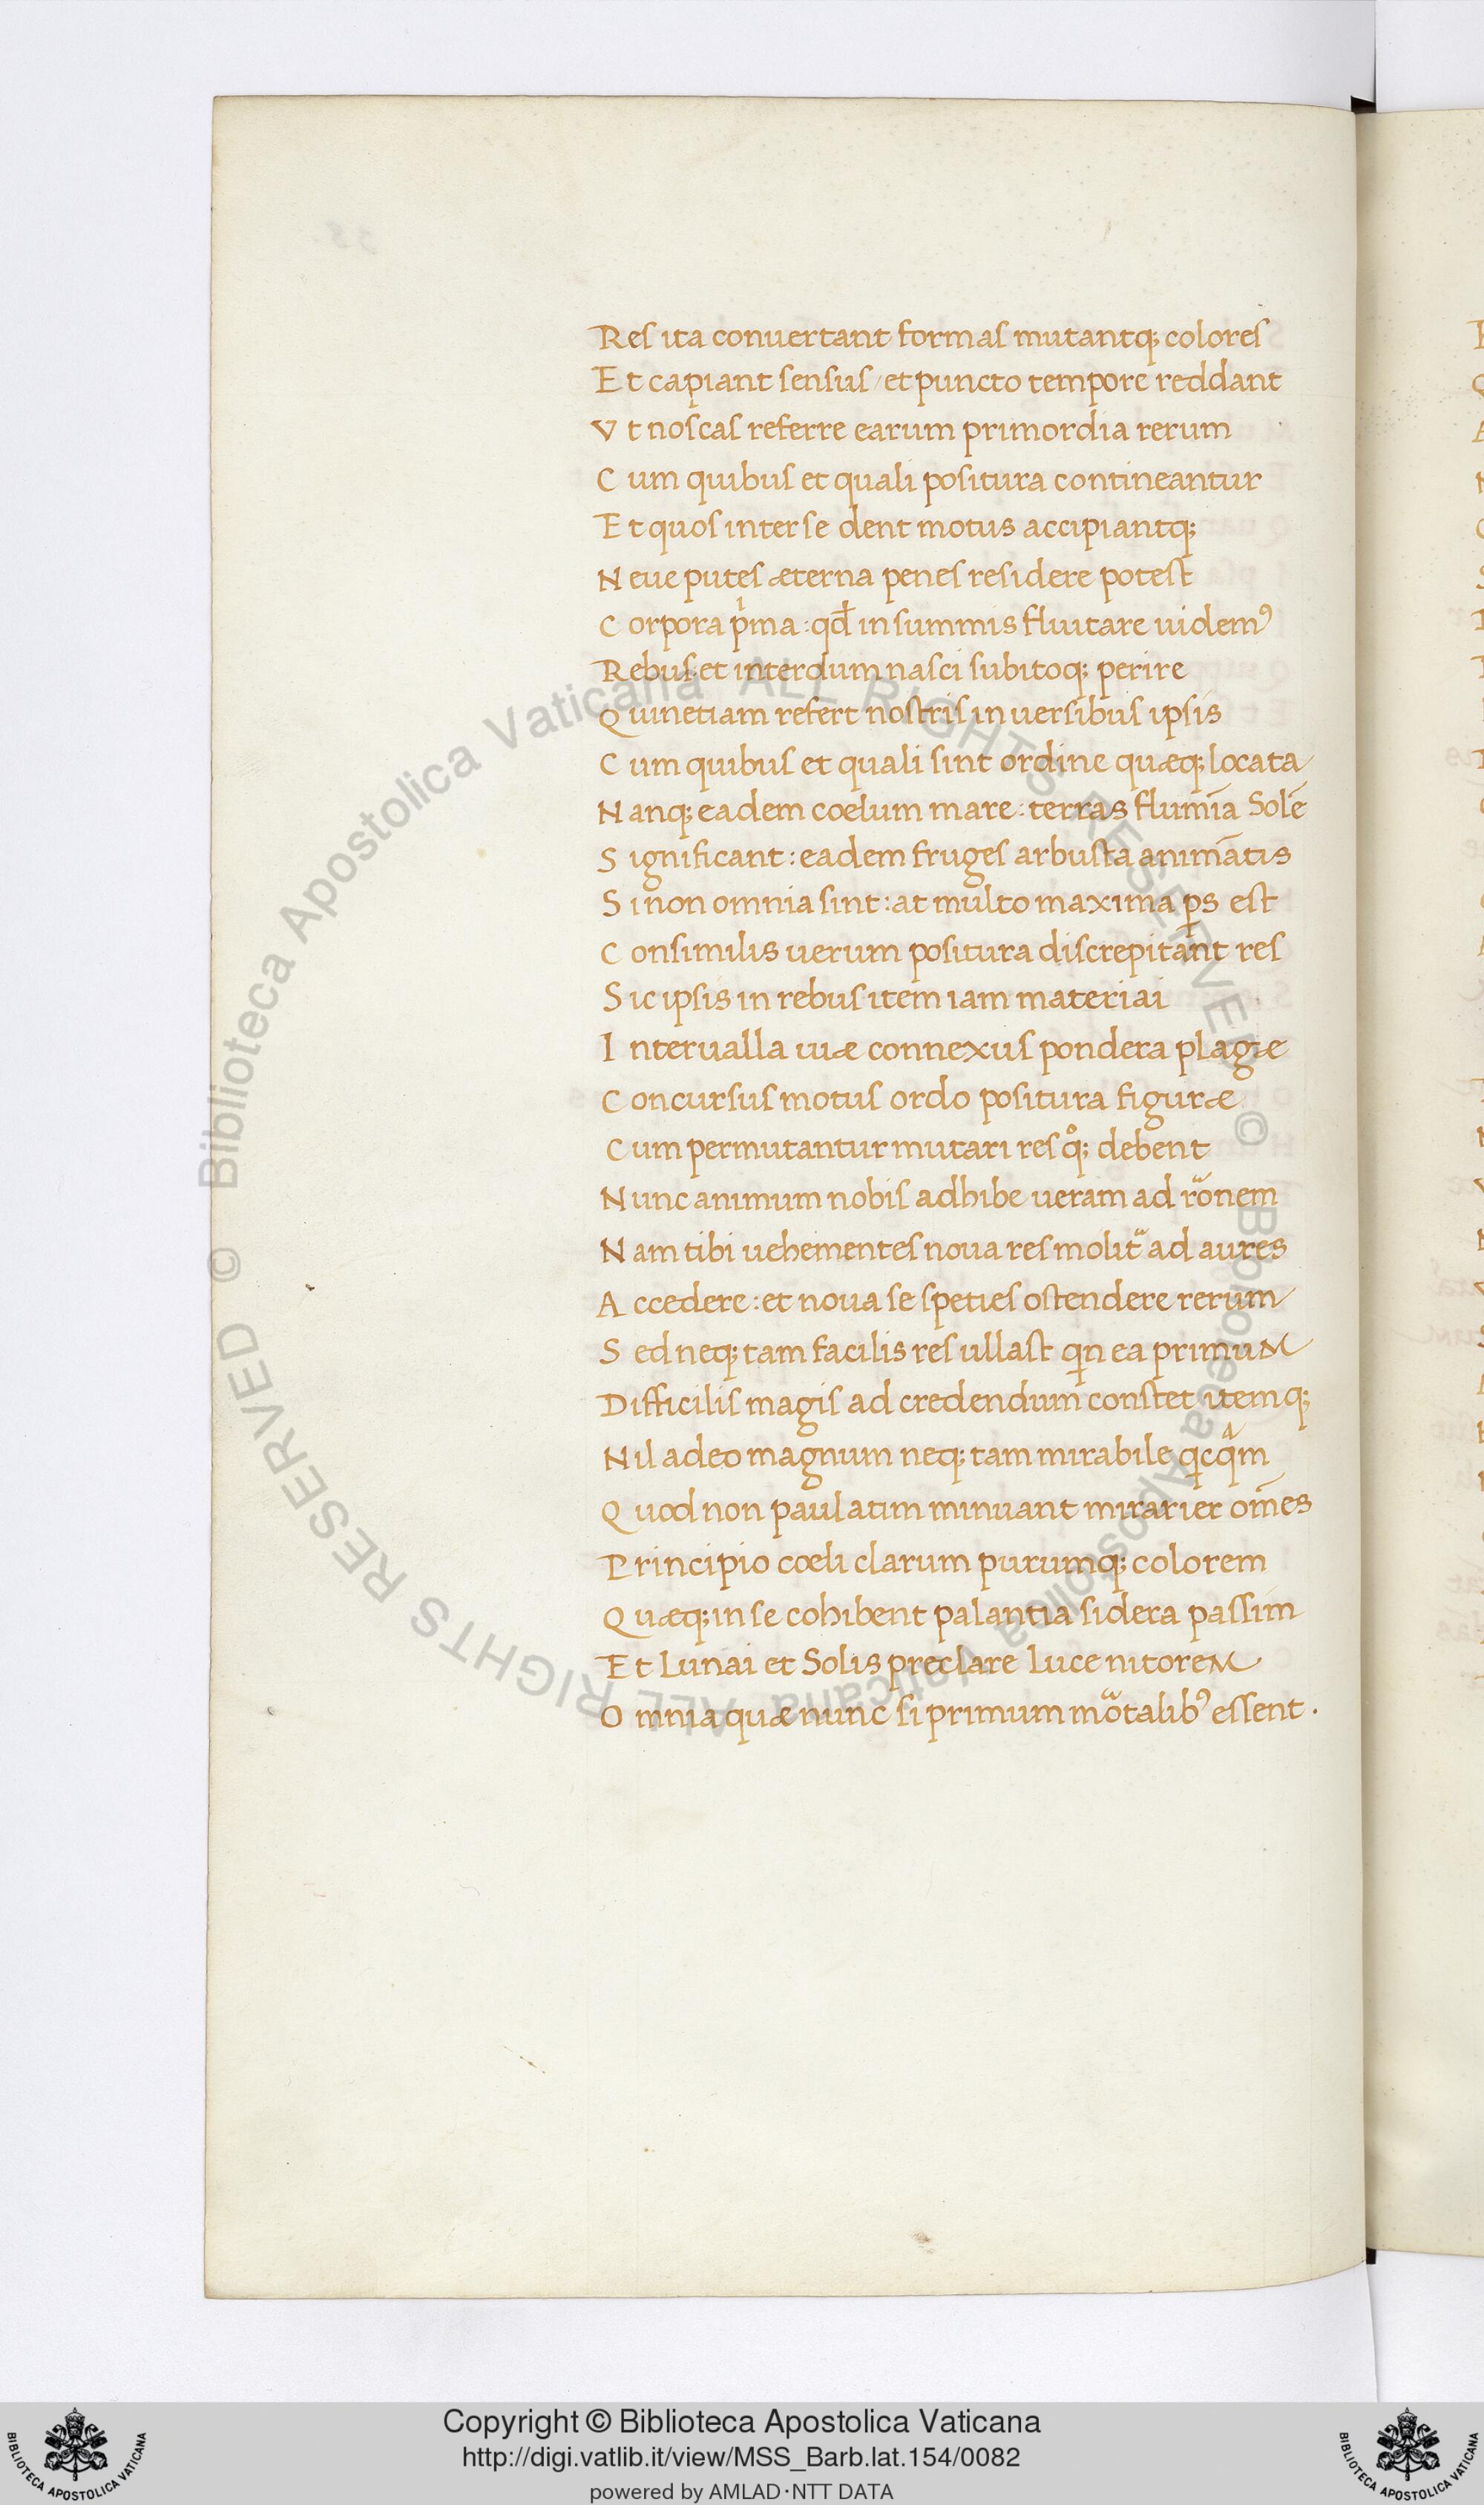 Res ita conuertant formas mutantq; colores
Et capiant sensus / et puncto tempore reddant
Vt noscas referre earum primordia rerum
Cum quibus et quali positura contineantur
Et quos inter se dent motus accipiantq;
Neue putes æterna penes residere potest
Corpora pͥma : qđ in summis fluitare uidemꝰ
Rebus. et interdum nasci subitoq; perire
Quinetiam refert nostris in uersibus ipsis
Cum quibus et quali sint ordine quæq; locata
Nanq; eadem coelum mare : terras flumīa Solē
Significant : eadem fruges arbusta animātis
Si non omnia sint : at multo maxima ꝑs est
Consimilis uerum positura discrepitant res
Sic ipsis in rebus item iam materiai
Interualla uiæ connexus pondera plagæ
Concursus motus ordo positura figuræ
Cum permutantur mutari res qͦ; debent
Nunc animum nobis adhibe ueram ad rōnem
Nam tibi uehementes noua res molit᷑ ad aures
Accedere : et noua se speties ostendere rerum
Sed neq; tam facilis res ullast qͥn ea primuM
Difficilis magis ad credendum constet itemq;
Nil adeo magnum neq; tam mirabile qͥcqͣm
Quod non paulatim minuant mirarier om̄es
Principio cœli clarum purumq; colorem
Quæq; in se cohibent palantia sidera passim
Et Lunai et Solis preclare luce nitoreM
Omnia quæ nunc si primum mo᷑talibꝰ essent .
© Biblioteca Apostolica Vaticana ALL RIGHTS RESERVED © Biblioteca Apostolica Vaticana ALL RIGHTS RESERVED
Copyright © Biblioteca Apostolica Vaticana
http://digi.vatlib.it/view/MSS_Barb.lat.154/0082
powered by AMLAD·NTT DATA
BIBLIOTECA APOSTOLICA VATICANA
BIBLIOTECA APOSTOLICA VATICANA